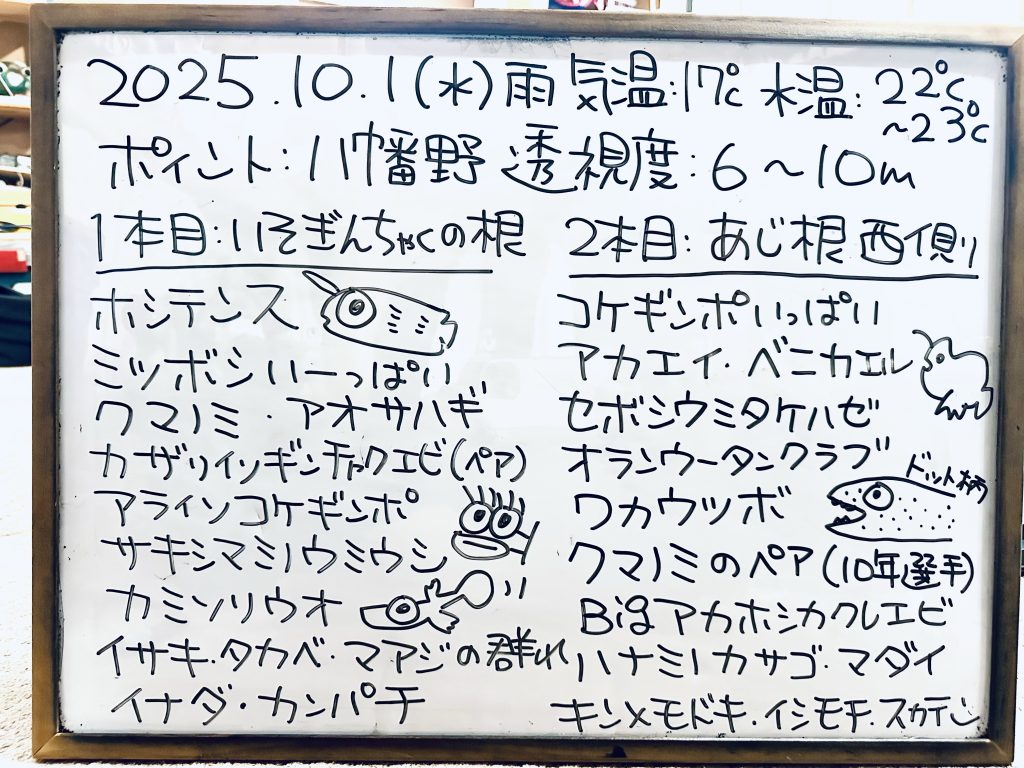 2025.10.1(水)雨 気温:17℃ 水温:22℃~23℃
ポイント:八幡野 透視度:6~10m
1本目:いそぎんちゃくの根
ホシテンス
ミツボシいーっぱい
クマノミ・アオサハギ
カザリイソギンチャクエビ(ペア)
アライソコケギンポ
サキシマミノウミウシ
カミソリウオ
イサキ・タカベ・マアジの群れ
イナダ・カンパチ
2本目:あじ根 西側
コケギンポいっぱい
アカエイ・ベニカエル
セボシウミタケハゼ
オランウータンクラブ
ドット柄
ワカウツボ
クマノミのペア(10年選手)
Bigアカホシカクレエビ
ハナミノカサゴ・マダイ
キンメモドキ・イシモチ・スカテン